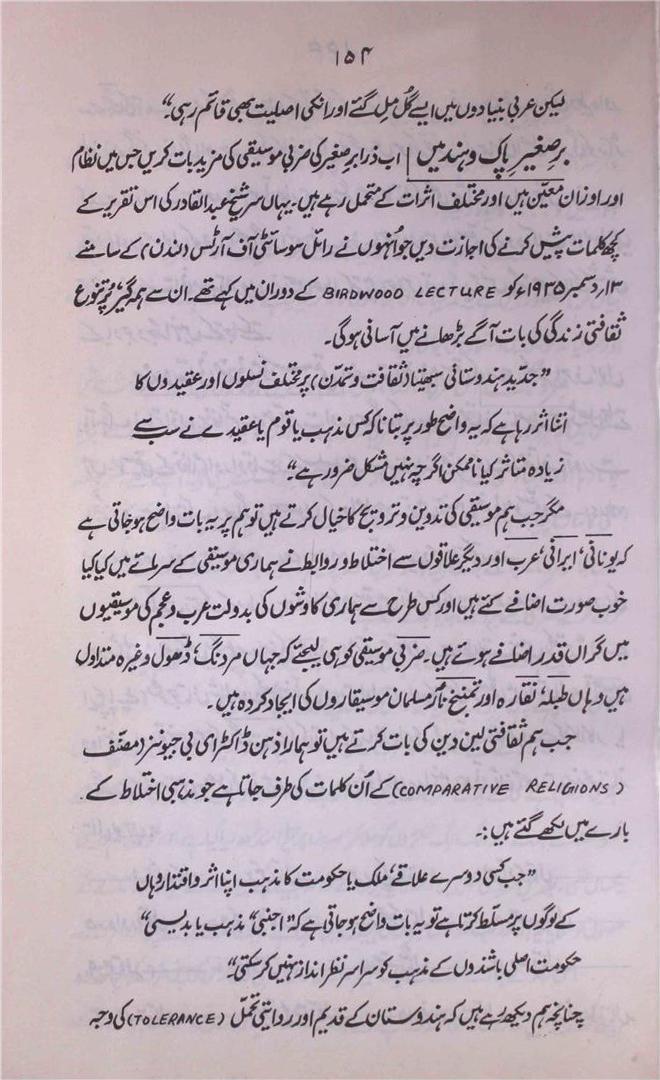 ۱۵۴
لیکن عربی بنیادوں میں ایسے گُھل مِل گئے اور انکی اصلیت بھی قائم رہی۔“
برصغیر پاک و ہند میں اب ذرا برصغیر کی ضربی موسیقی کی مزید بات کریں جس میں نظام
اور اوزان معیّن ہیں اور مختلف اثرات کے متحمل رہے ہیں۔ یہاں سر شیخ عبدالقادر کی اس تقریر کے
کچھ کلمات پیش کرنے کی اجازت دیں جو اُنہوں نے رائل سوسائٹی آف آرٹس (لندن) کے سامنے
۱۳؍ دسمبر ۱۹۳۵ء کو BIRDWOOD LECTURE کے دوران میں کہے تھے۔ ان سے ہمہ گیر، پُر تنوع
ثقافتی زندگی کی بات آگے بڑھانے میں آسانی ہوگی۔
”جدید ہندوستانی سبھیتا (ثقافت و تمدّن) پر مختلف نسلوں اور عقیدوں کا
اتنا اثر رہا ہے کہ یہ واضح طور پر بتانا کہ کس مذہب یا قوم یا عقیدے نے سب سے
زیادہ متاثر کیا ناممکن اگرچہ نہیں مشکل ضرور ہے“۔
مگر جب ہم موسیقی کی تدوین و ترویج کا خیال کرتے ہیں تو ہم پر یہ بات واضح ہو جاتی ہے
کہ یونانی، ایرانی، عرب اور دیگر علاقوں سے اختلاط و روابط نے ہماری موسیقی کے سرمائے میں کیا کیا
خوب صورت اضافے کئے ہیں اور کس طرح سے ہماری کاوشوں کی بدولت عرب و عجم کی موسیقیوں
میں گراں قدر اضافے ہوئے ہیں۔ ضربی موسیقی کو ہی لیجئے کہ جہاں مردنگ، ڈھول وغیرہ متداول
ہیں وہاں طبلہ، نقارہ اور مسلمان موسیقاروں کی ایجاد کردہ ہیں۔
جب ہم ثقافتی لین دین کی بات کرتے ہیں تو ہمارا ذہن ڈاکٹر ای بی جیونز (مصنّف
(COMPARATIVE RELIGIONS) کے اُن کلمات کی طرف جاتا ہے جو مذہبی اختلاط کے
بارے میں لکھے گئے ہیں:۔
”جب کسی دوسرے علاقے، ملک یا حکومت کا مذہب اپنا اثر و اقتدار وہاں
کے لوگوں پر مسلّط کرتا ہے تو یہ بات واضح ہو جاتی ہے کہ ”اجنبی“ مذہب یا بدیسی“
حکومت اصلی باشندوں کے مذہب کو سراسر نظر انداز نہیں کر سکتی“۔
چنانچہ ہم دیکھ رہے ہیں کہ ہندوستان کے قدیم اور روایتی تحمّل (TOLERANCE) کی وجہ